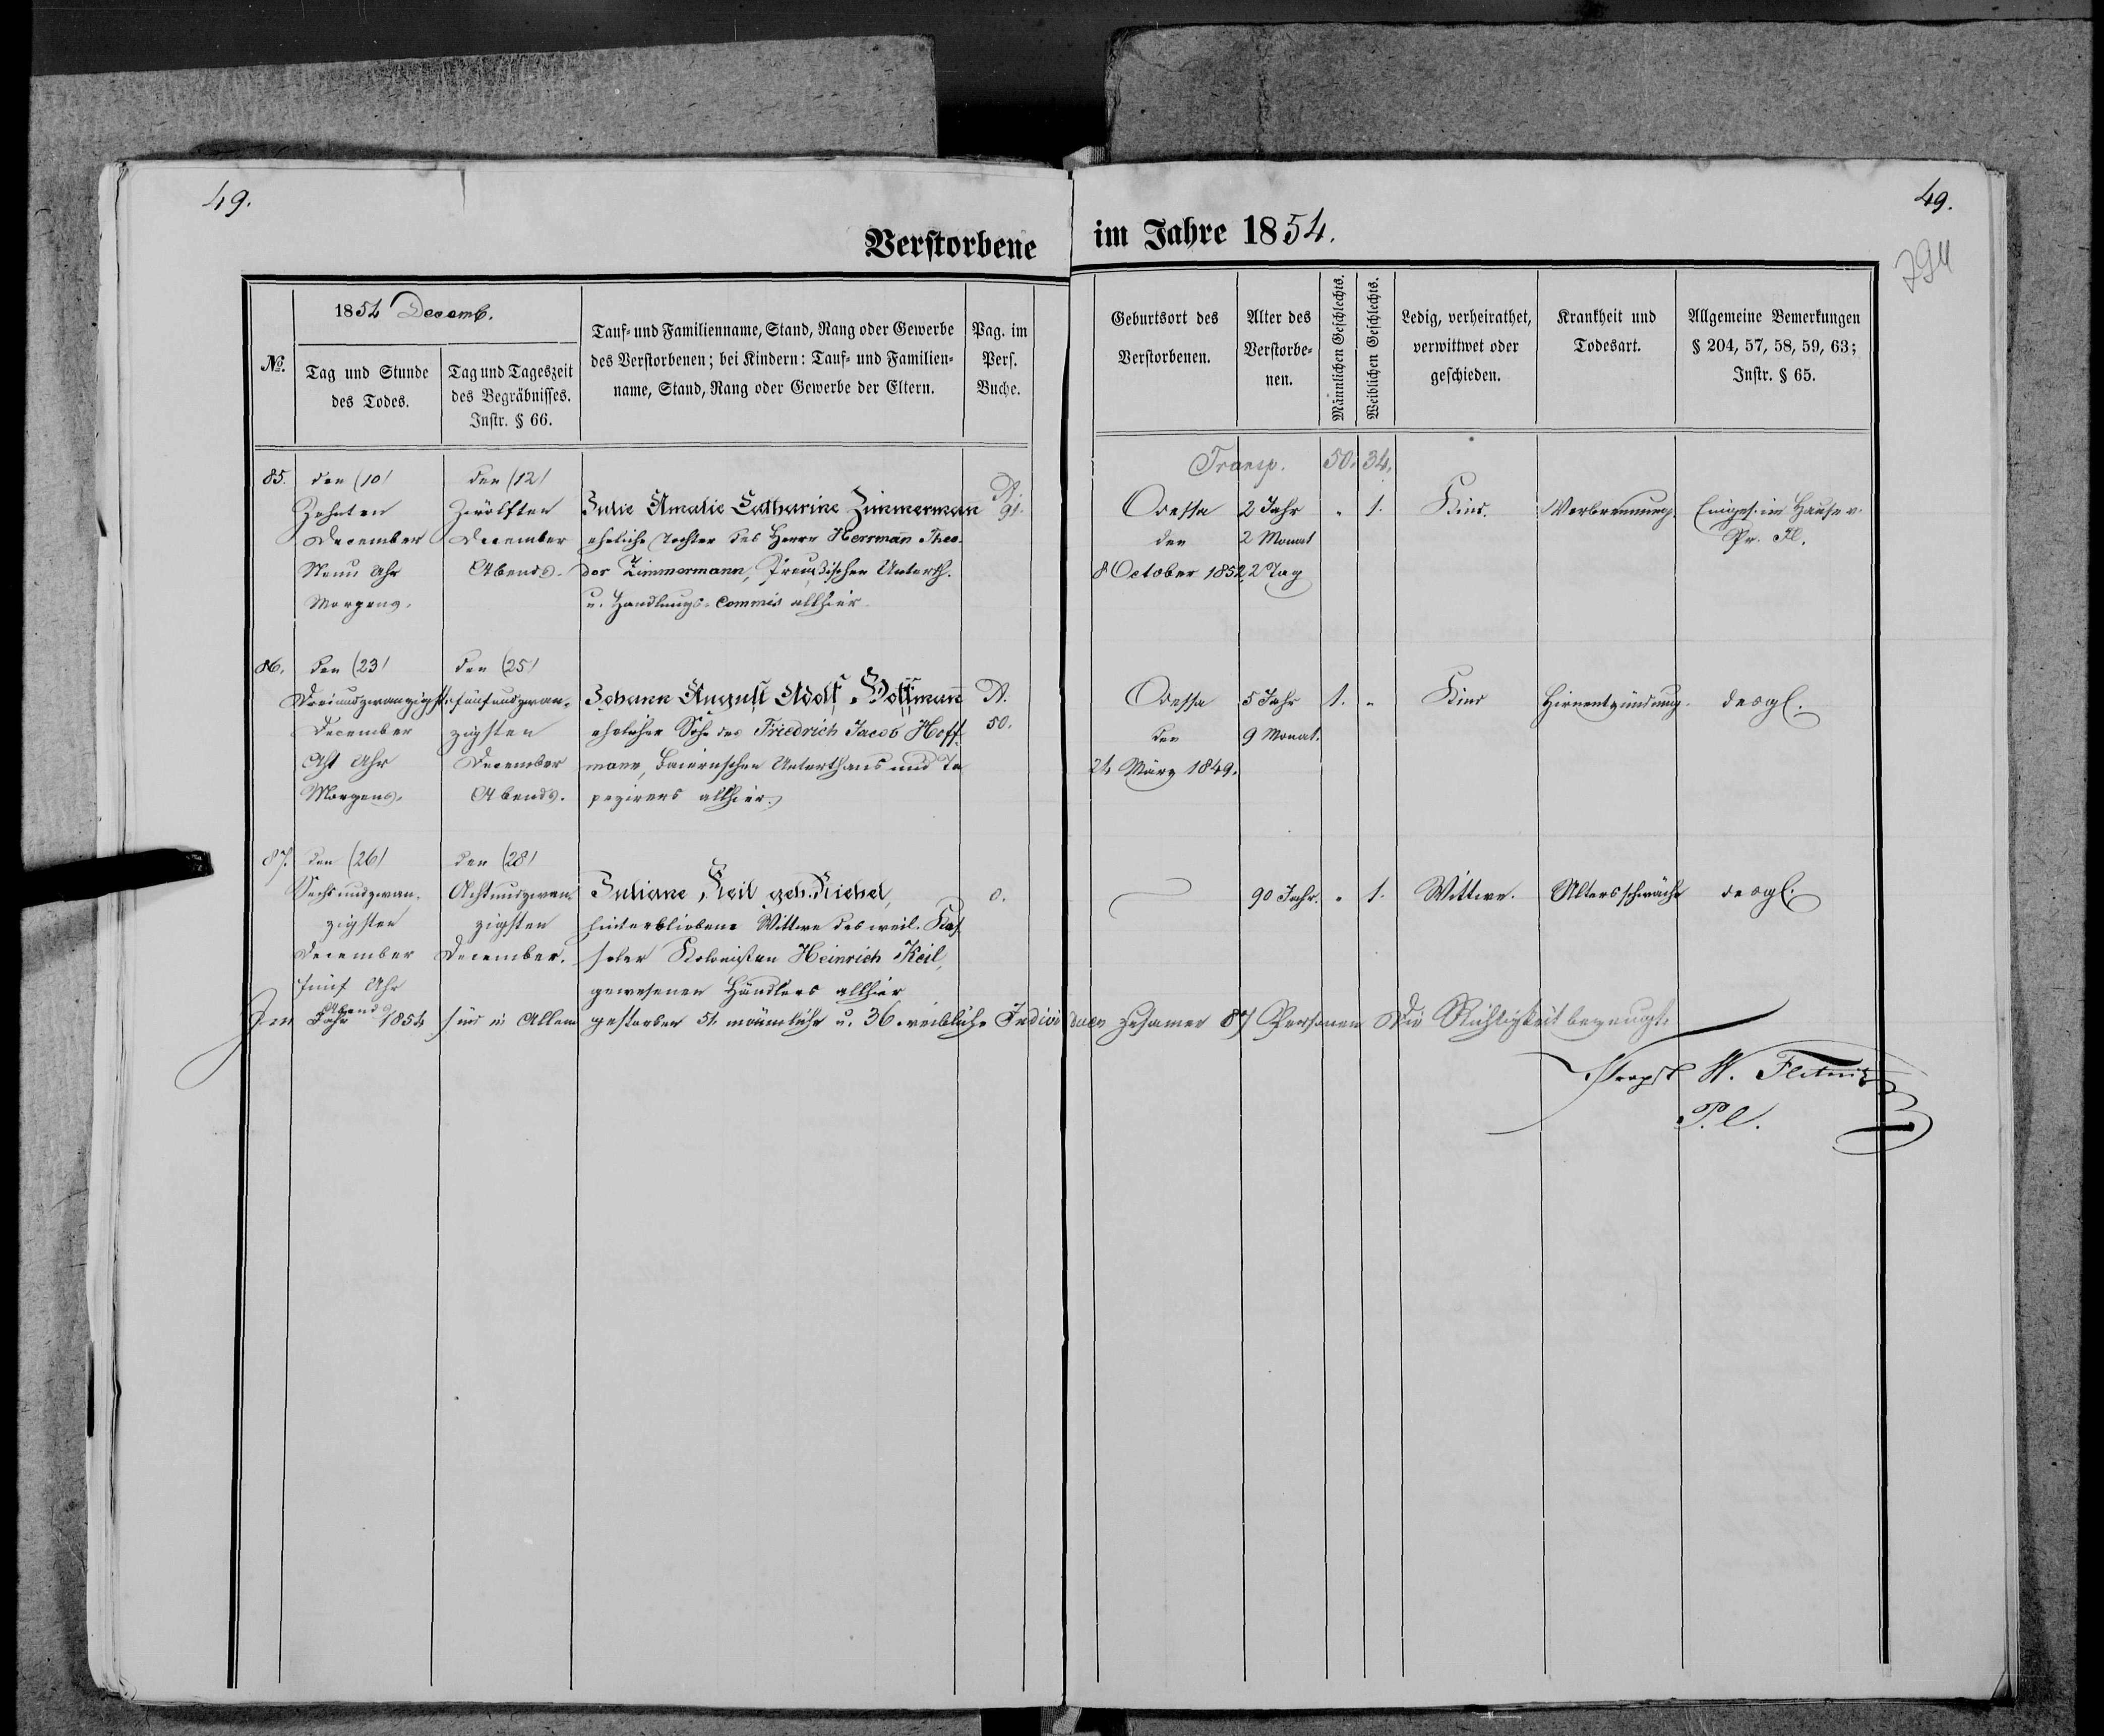 49.
49.
294
Verstorbene im Jahre 1854.
No.
1854 Decemb.
Tag und Stunde
des Todes.
Tag und Tageszeit
des Begräbnisses.
Instr. § 66.
Tauf- und Familienname, Stand, Rang oder Gewerbe
des Verstorbenen; bei Kindern: Tauf- und Familien-
name, Stand, Rang oder Gewerbe der Eltern.
Pag. im
Pers.
Buche.
Geburtsort des
Verstorbenen.
Alter des
Verstorbe-
nen.
Männlichen Geschlechts.
Weiblichen Geschlechts.
Ledig, verheirathet,
verwittwet oder
geschieden.
Krankheit und
Todesart.
Allgemeine Bemerkungen
§ 204, 57, 58, 59, 63;
Instr. § 65.
Transp. 50. 34.
85.
den (10)
Zehnten
December
Neun Uhr
Morgens.
den (12)
Zwölften
December
Abends.
Julie Amalie Catharine Zimmermann
eheliche Tochter des Herrn Herrmann Theo-
dor Zimmermann, Preußischen Unterth.
u. Handlungs-Commis allhier
A.
91.
Odessa
den
8 October 1852
2 Jahr
2 Monat
2 Tag
" 1.
Kind.
Verbrennung.
Einges. im Hause v.
Pr. Fl.
86.
den (23)
Dreiundzwanzigst.
December
Acht Uhr
Morgens.
den (25)
fünfundzwan-
zigsten
December
Abends.
Johann August Adolf Hoffmann
ehelicher Sohn des Friedrich Jacob Hoff-
mann, Baiernschen Unterthans und Ta
pezirers allhier.
A.
50.
Odessa
den
24 März 1849.
5 Jahr
9 Monat.
1. "
Kind
Hirnentzündung.
desgl.
87.
den (26)
Sechsundzwan-
zigsten
December
fünf Uhr
Abends
den (28)
Achtundzwan-
zigsten
December.
Juliane Keil geb. Richel,
hinterbliebene Wittwe des weil. Kas-
seler Kolonisten Heinrich Keil,
gewesenen Händlers allhier
0.
90 Jahr.
" 1.
Wittwe.
Altersschwäche
desgl.
Im Jahr 1854 sind in Allem gestorben 51 männliche u. 36 weibliche Individuen Zusamen 87 Personen Die Richtigkeit bezeugt.
Propst W. Fletnitzer
P. l.